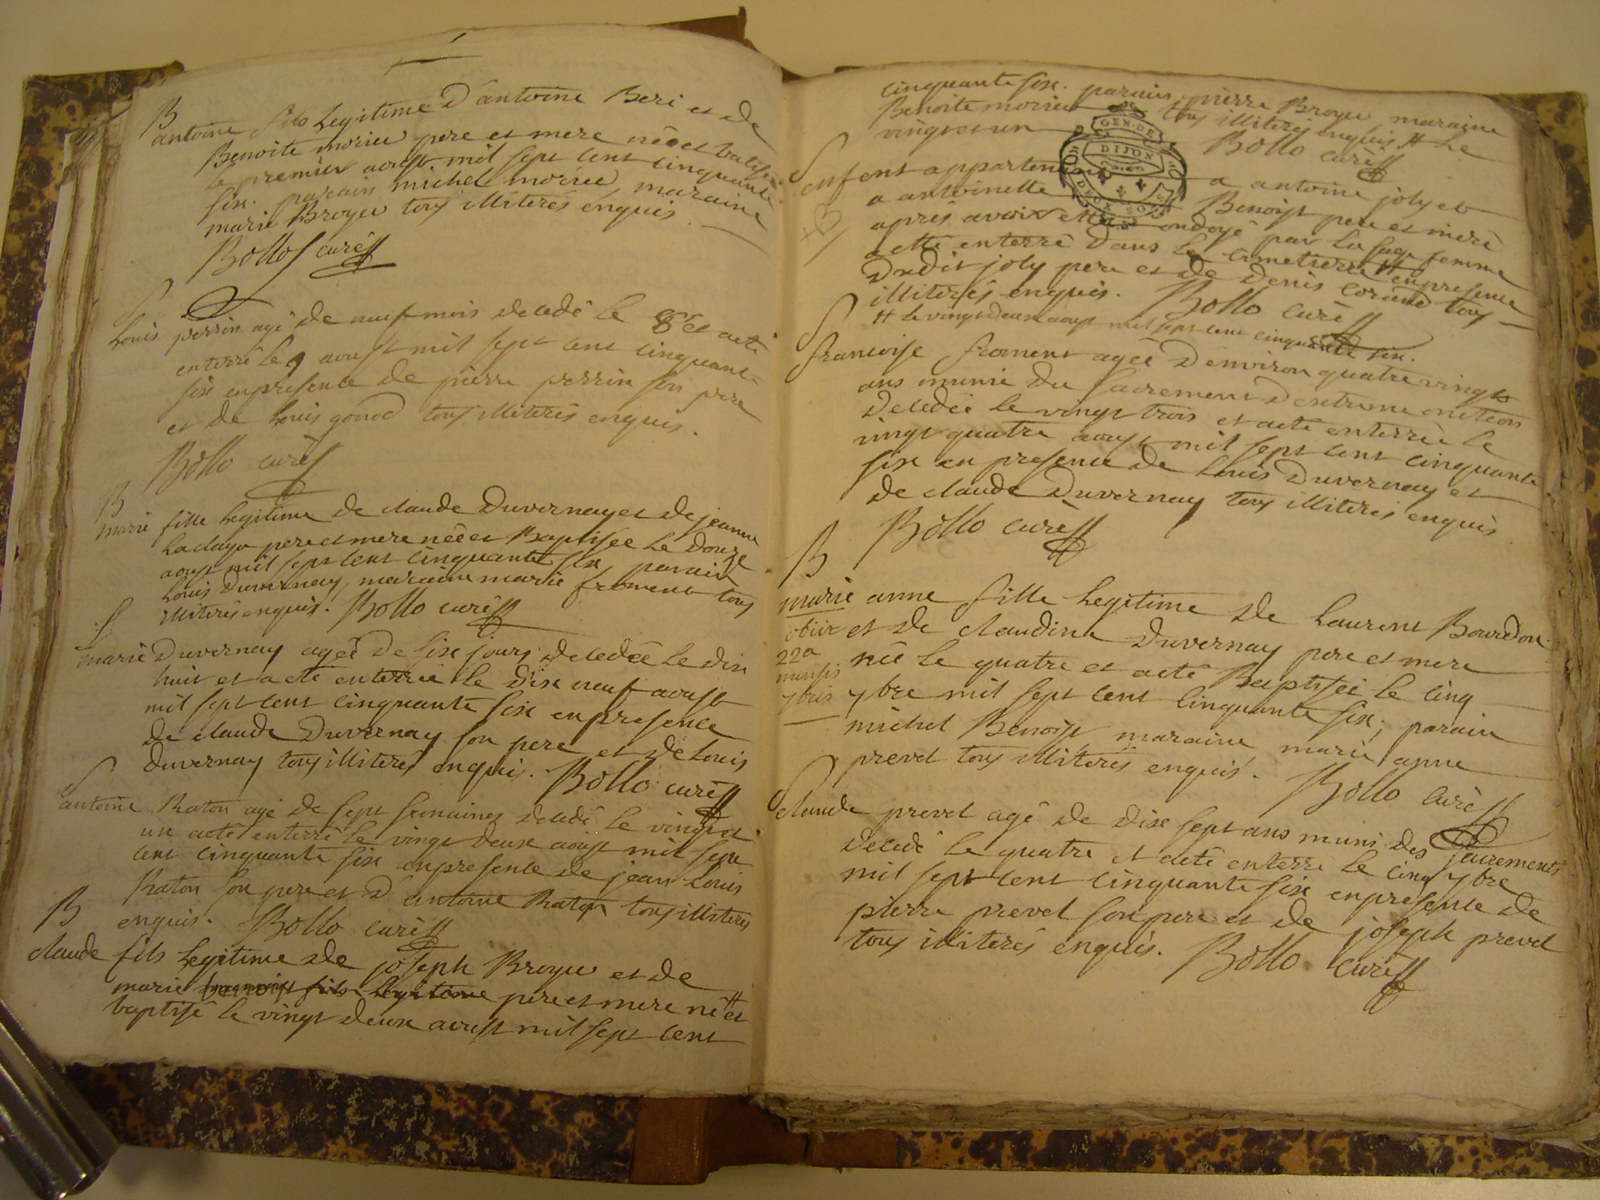 B
antoine fils legitime d'antoine Beri et de
Benoite morier pere et mere né et batisé
le premier aoust mil sept cent cinquante
six. parain michel morier maraine
marie Broyer tous illiterés enquis
Bollo curé
S
Louis perrin agé de neuf mois decedé le 8 et a eté
enterré le 9 aoust mil sept cent cinquante
six en presence de pierre perrin son pere
et de Louis gonod tous illiterés enquis.
Bollo curé
B
marie fille legitime de claude Duvernay et de jeanne
pere et mere née et Baptisée le Douze
aoust mil sept cent cinquante six parain
Louis Duvernay, maraine marie froment tous
illiterés enquis. Bollo curé
S
marie Duvernay ageé de six jours decedeé le dix
huit et a eté enterreé le dix neuf aoust
mil sept cent cinquante six en presence
de claude Duvernay son pere et de Louis
Duvernay tous illiterés enquis. Bollo curé
S
antoine Raton agé de sept semaines decedé le vingt et
un a eté enterré le vingt deux aoust mil sept
cent cinquante six en presence de jean Louis
Raton son pere et d'antoine Raton tous illiterés
enquis. Bollo curé
B
claude fils legitime de joseph Broyer et de
marie benoist pere et mere né et
baptisé le vingt deux aoust mil sept cent
cinquante six. parain pierre Broyer maraine
Benoite morier tous illiterés enquis # le
vingt et un Bollo curé
GEN. DE
DIJON
S
enfent appartenant a antoine joly et
a antoinette Benoist pere et mere
apres avoir eté ondoyé par la sage femme
a eté enterré dans le cimetiere # en presence
Dudit joly pere et de Denis tous
illiterés enquis. Bollo curé
# le vingt deux aoust mil sept cent cinquante six.
S
francoise froment ageé d'environ quatre vingts
ans munie du sacrement d'extreme onction
decedeé le vingt trois et a eté enterreé le
vingt quatre aoust mil sept cent cinquante
six en presence de Louis Duvernay et
de claude Duvernay tous illiterés enquis
Bollo curé
B
marie anne fille legitime de Laurent Bourdon
obiit et de claudine Duvernay pere et mere
22a neé le quatre et a eté Baptiseé le cinq
mensis 7bre mil sept cent cinquante six, parain
7bris michel Benoist maraine marie anne
prevel tous illiterés enquis.
Bollo curé
S
claude prevel agé de dix sept ans muni des sacrements
decedé le quatre et a eté enterré le cinq 7bre
mil sept cent cinquante six en presence de
pierre prevel son pere et de joseph prevel
tous illiterés enquis. Bollo curé